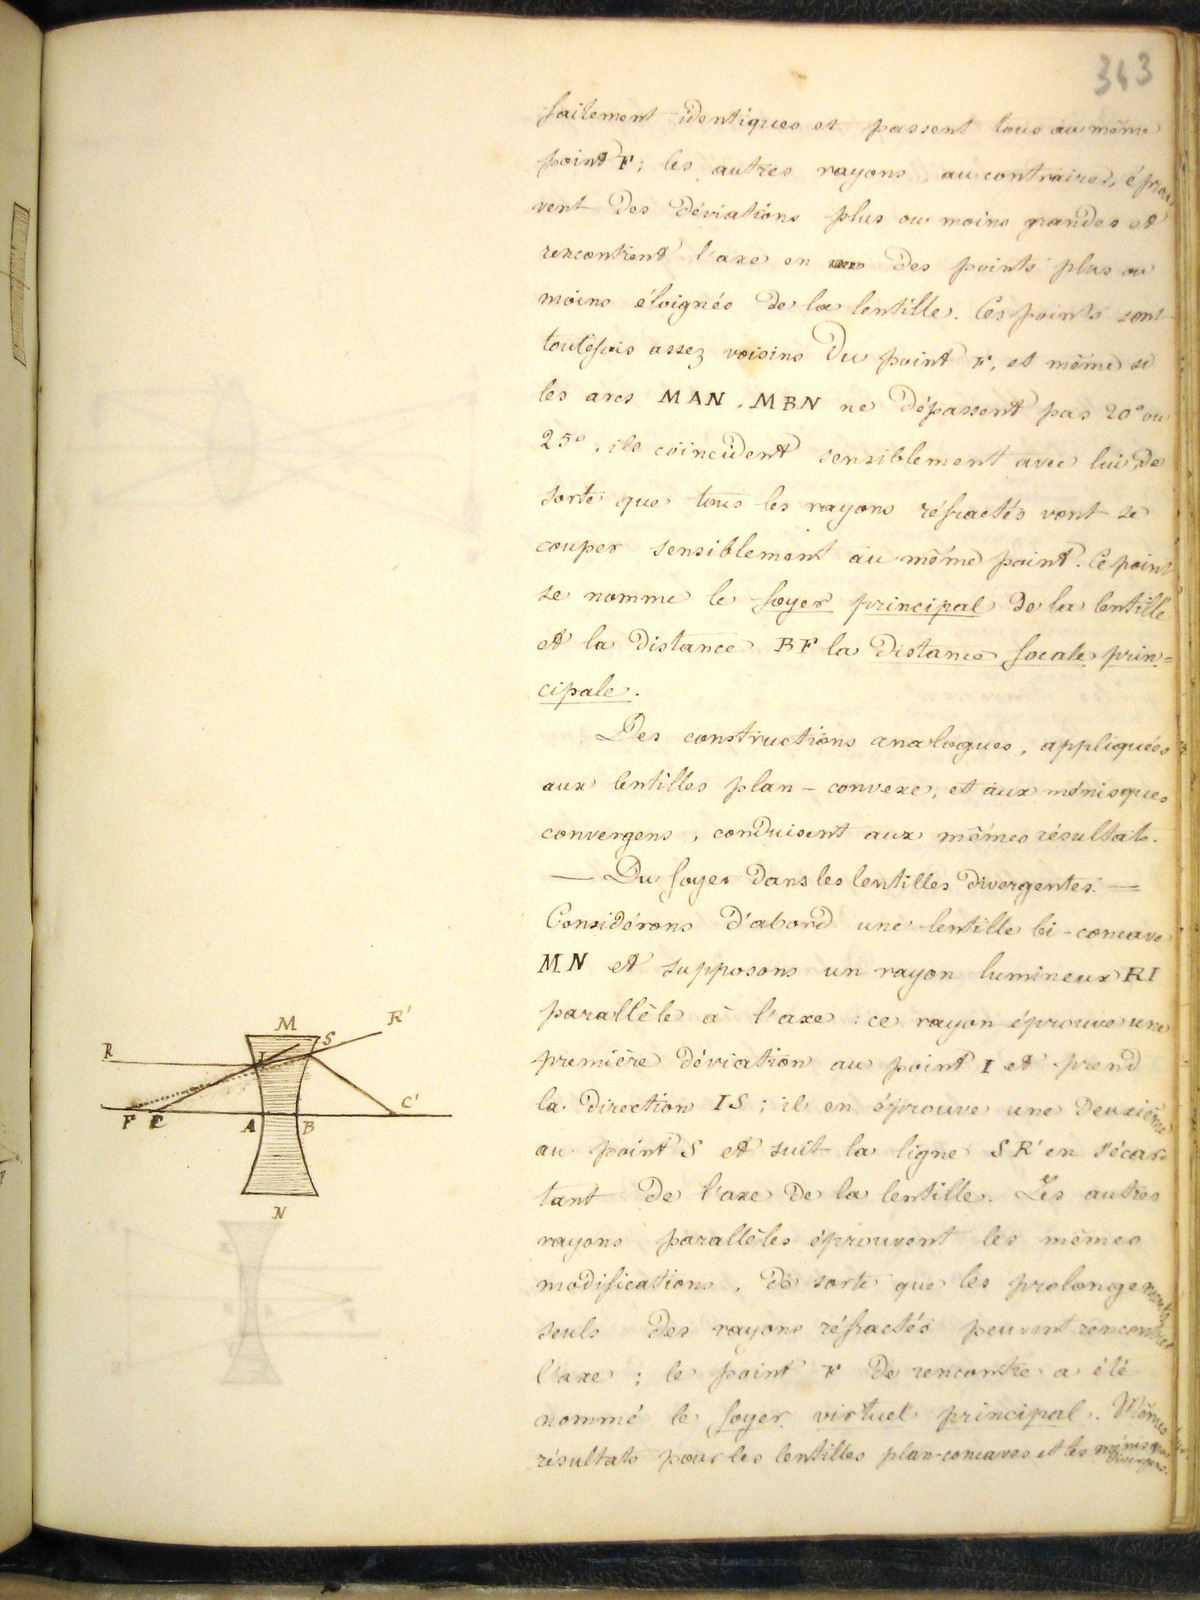 343
faitement identiques et passent tous au même
point F ; les autres rayons, au contraire, éprou
vent des déviations plus ou moins grandes et
rencontrent l'axe en des points plus ou
moins éloignés de la lentille. Ces points sont
toutefois assez voisins du point F, et même si
les arcs MAN, MBN ne dépassent pas 20° ou
25°, ils coïncident sensiblement avec lui, de
sorte que tous les rayons réfractés vont se
couper sensiblement au même point. Ce point
se nomme le foyer principal de la lentille
et la distance BF la distance focale prin=
cipale.
Des constructions analogues, appliquées
aux lentilles plan-convexe, et aux ménisques
convergens, conduisent aux mêmes résultats.
— Du foyer dans les lentilles divergentes. —
Considérons d'abord une lentille bi-concave
MN et supposons un rayon lumineux RI
parallèle à l'axe : ce rayon éprouve une
première déviation au point I et prend
la direction IS ; il en éprouve une deuxième
au point S et suit la ligne SR' en s'écar
tant de l'axe de la lentille. Les autres
rayons parallèles éprouvent les mêmes
modifications, de sorte que les prolongements
seuls des rayons réfractés peuvent rencontrer
l'axe ; le point F de rencontre a été
nommé le foyer virtuel principal. Mêmes
résultats pour les lentilles plan-concaves et les ménisques
divergens.
M
S
R'
R
I
F
C
A
B
C'
N